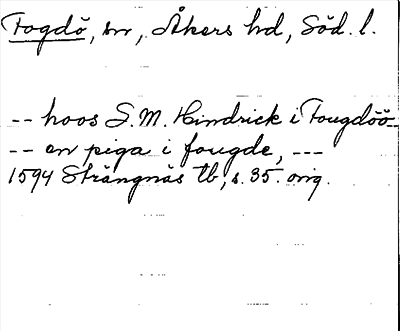 Fogdö, sn, Åkers hd, Söd. l.
-- hoos S.M. Hindrick i Fougdöö --
-- en piga i fougde, ---
1594 Strängnäs tb, s. 35. orig.